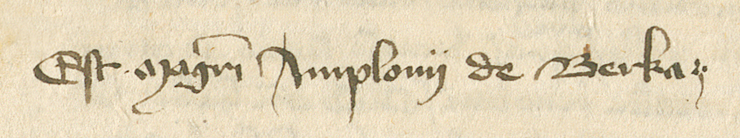 Est magr̄i Amplonij de Berka